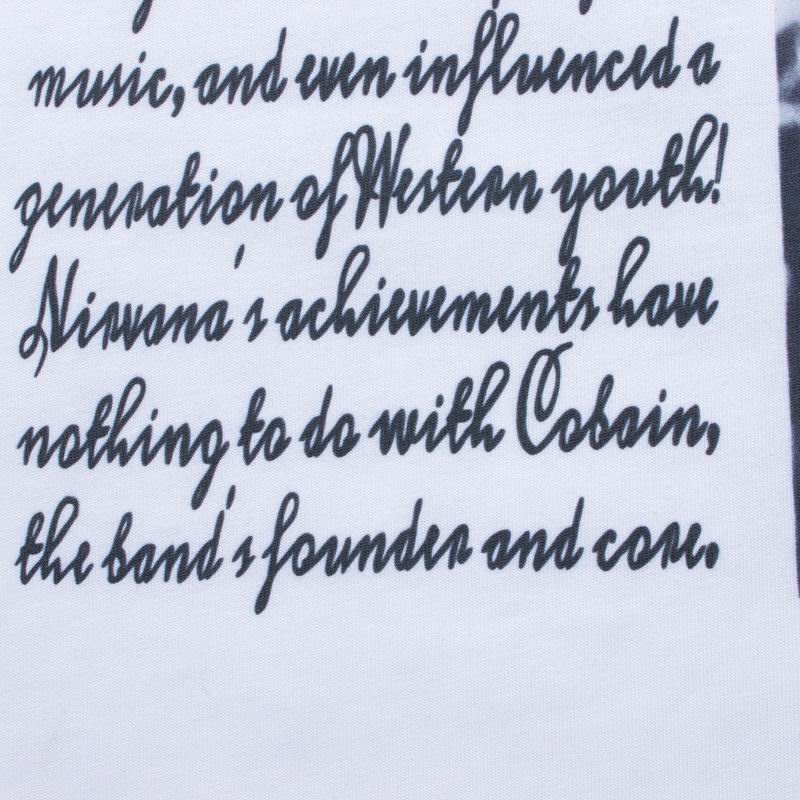 music, and even influenced a
generation of Western youth!
Nirvana's achievements have
nothing to do with Cobain,
the band's founder and core.